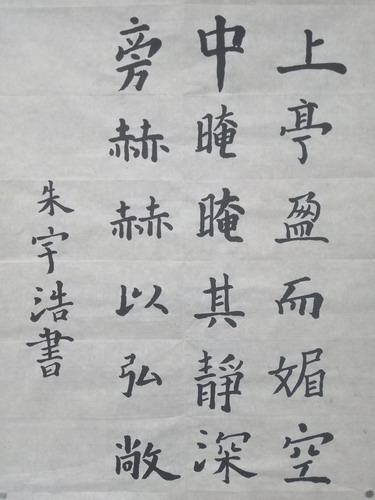 上亭盈而媚空
中晻晻其靜深
旁赫赫以弘敞
朱宇浩書